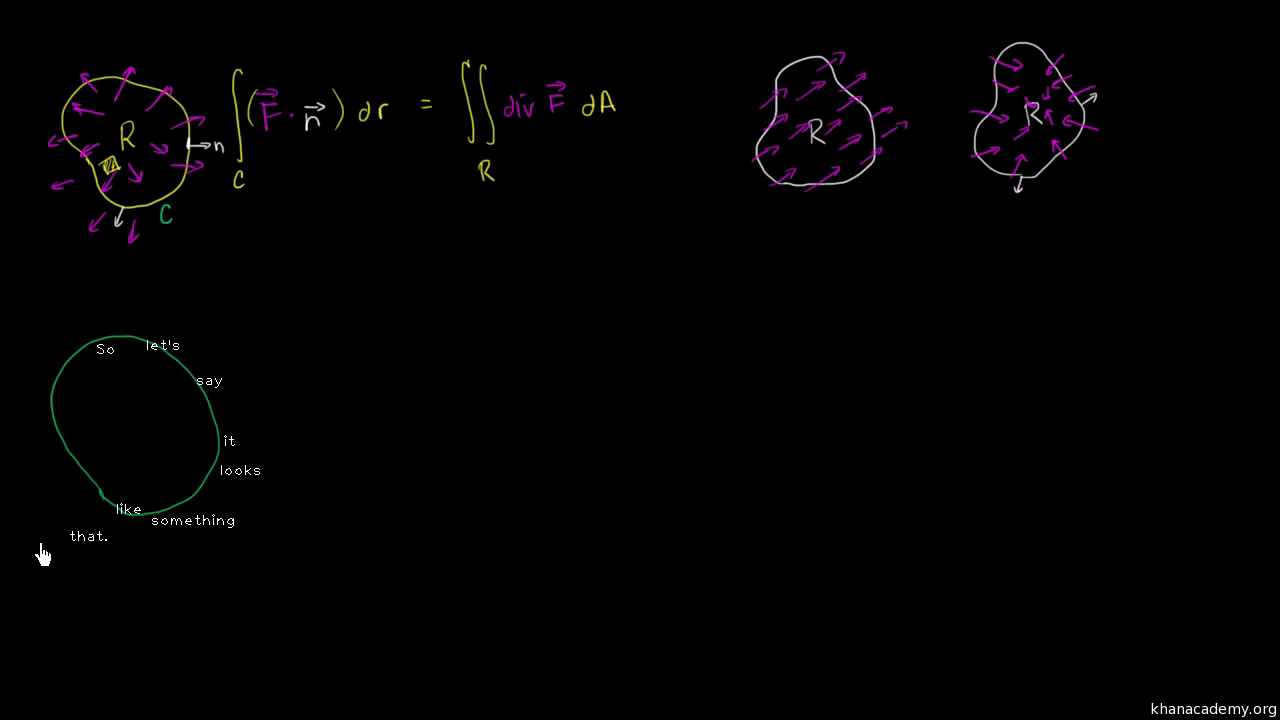 R
n
C
∫_C (F⃗ · n⃗) dr = ∬_R div F⃗ dA
R
R
So let's
say
it
looks
like
something
that.
khanacademy.org